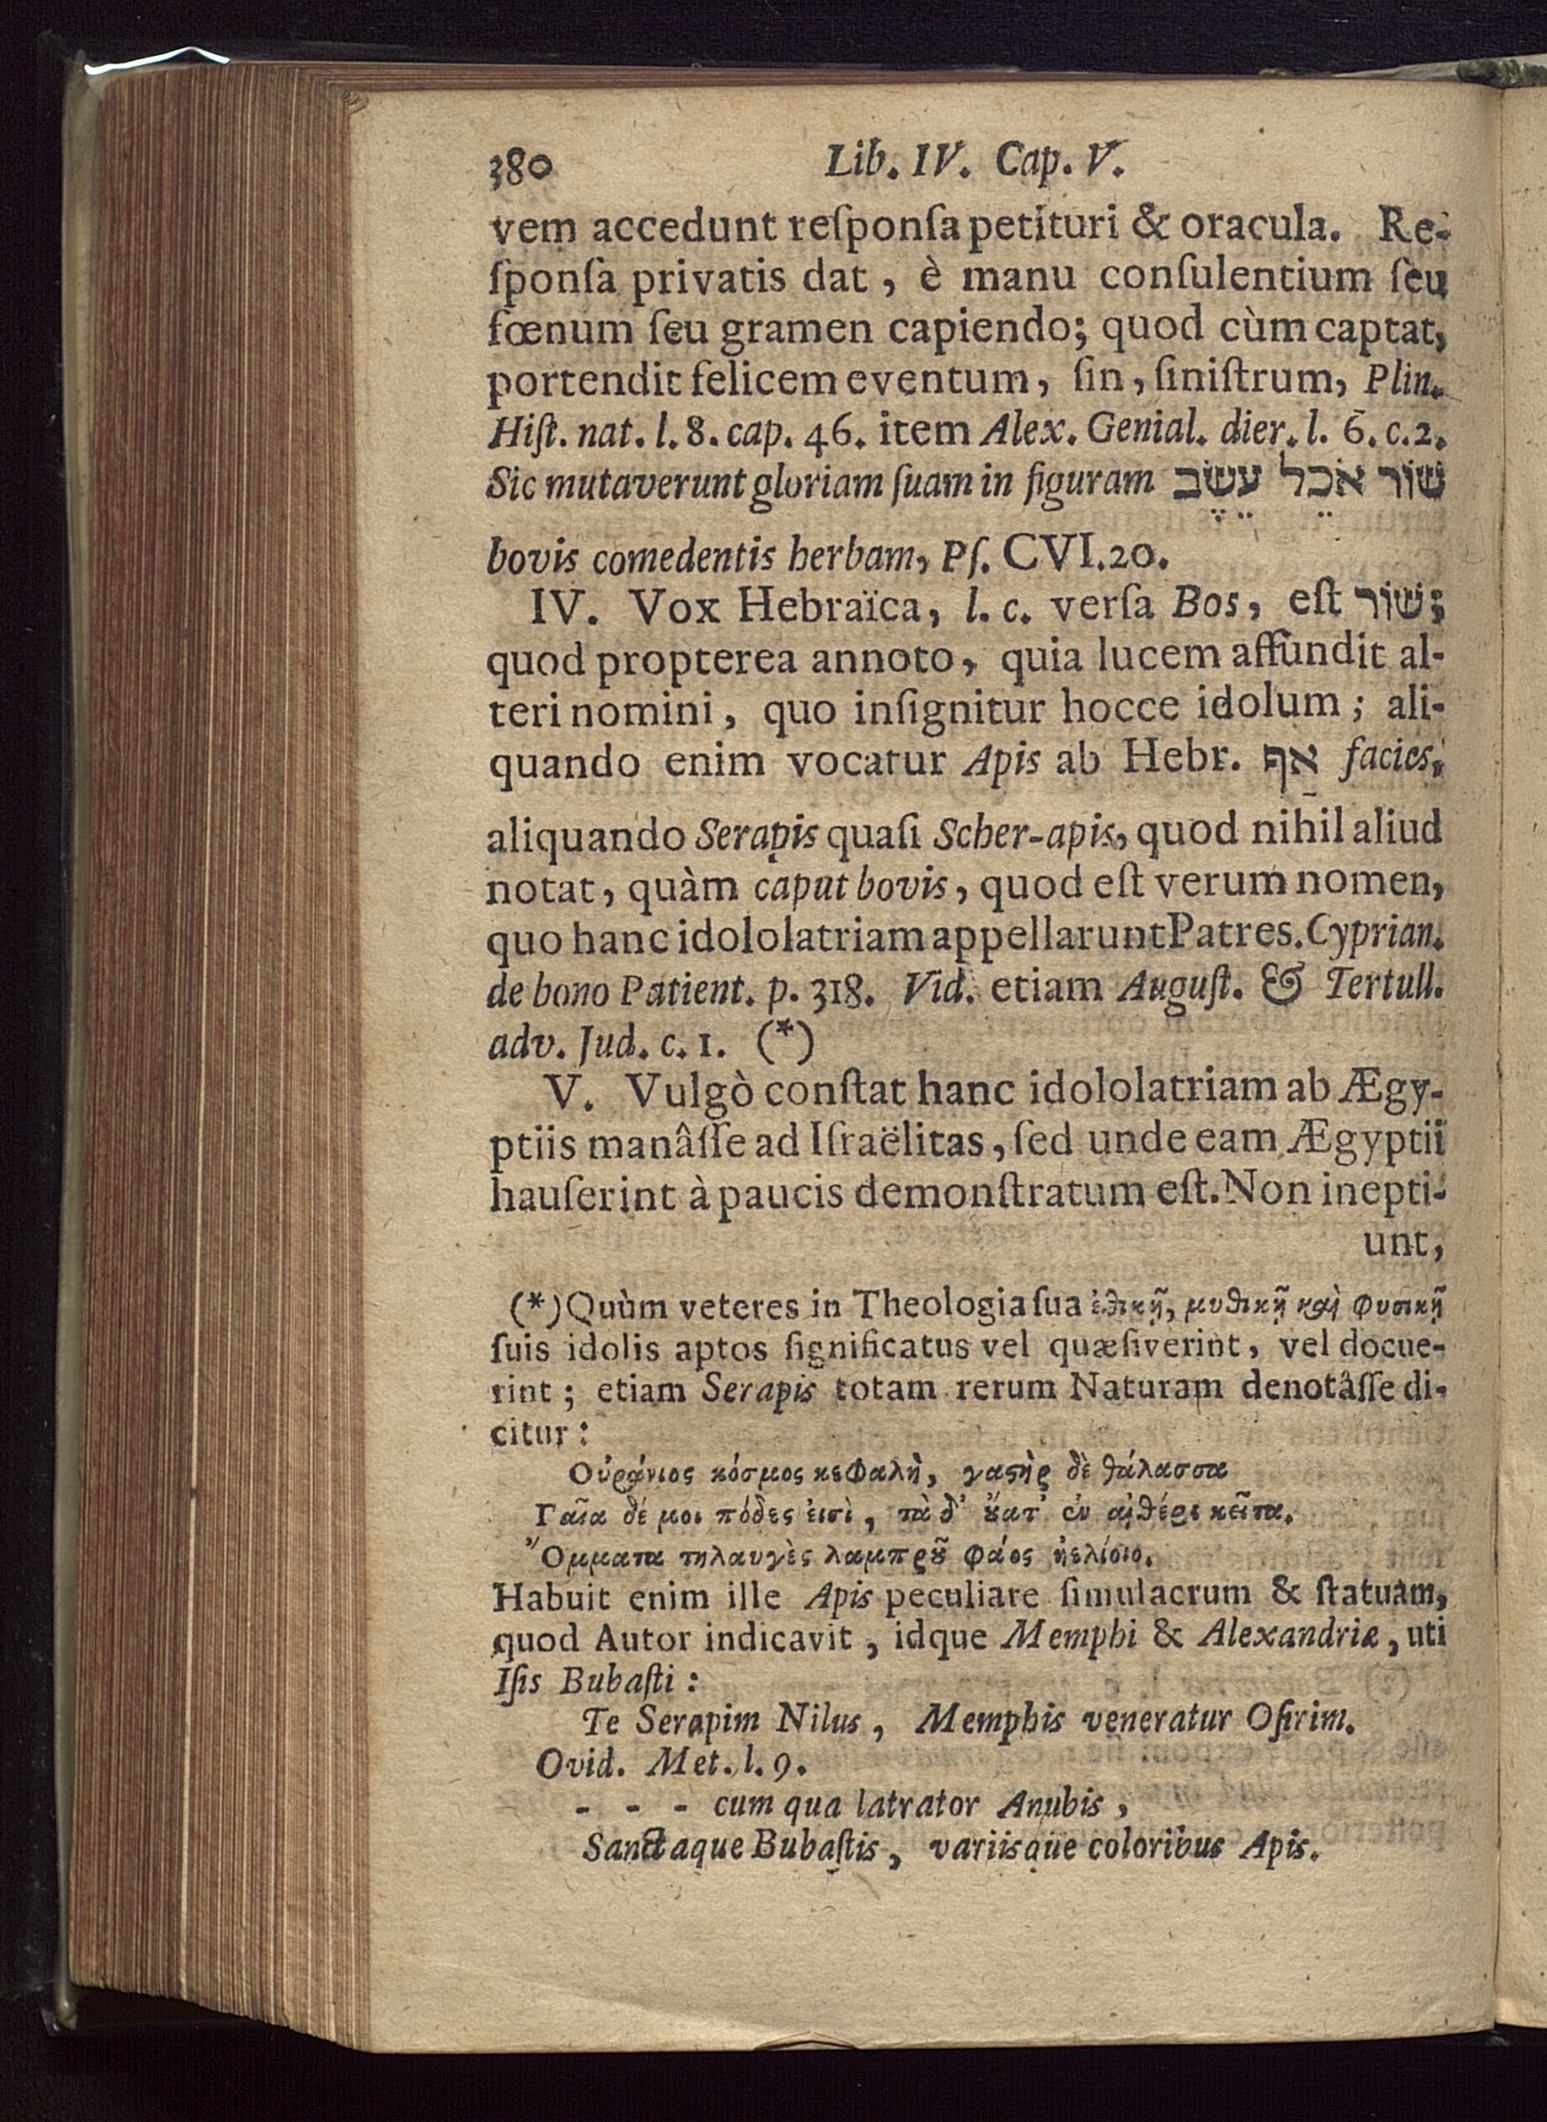 380 Lib. IV. Cap. V.
vem accedunt reſponſa petituri & oracula. Re-
ſponſa privatis dat, è manu conſulentium ſeu
fœnum ſeu gramen capiendo; quod cùm captat,
portendit felicem eventum, ſin, ſiniſtrum, Plin.
Hiſt. nat. l. 8. cap. 46. item Alex. Genial. dier. l. 6. c. 2.
Sic mutaverunt gloriam ſuam in figuram שׁוֹר אֹכֵל עֵשֶׂב
bovis comedentis herbam, Pſ. CVI. 20.
IV. Vox Hebraïca, l. c. verſa Bos, eſt שׁוֹר;
quod propterea annoto, quia lucem affundit al-
teri nomini, quo inſignitur hocce idolum; ali-
quando enim vocatur Apis ab Hebr. אַף facies,
aliquando Serapis quaſi Scher-apis, quod nihil aliud
notat, quàm caput bovis, quod eſt verum nomen,
quo hanc idololatriam appellarunt Patres. Cyprian.
de bono Patient. p. 318. Vid. etiam Auguſt. & Tertull.
adv. Jud. c. 1. (*)
V. Vulgò conſtat hanc idololatriam ab Ægy-
ptiis manâſſe ad Iſraëlitas, ſed unde eam Ægyptii
hauſerint à paucis demonſtratum eſt. Non inepti-
unt,
(*) Quùm veteres in Theologia ſua ἐθικῇ, μυθικῇ καὶ φυσικῇ
ſuis idolis aptos ſignificatus vel quæſiverint, vel docue-
rint; etiam Serapis totam rerum Naturam denotâſſe di-
citur:
Οὐράνιος κόσμος κεφαλὴ, γαςὴρ δὲ θάλασσα
Γαῖα δέ μοι πόδες εἰσὶ, τὰ δ' ȣ̓́ατ' ἐν αἰθέρι κεῖται.
Ὄμματα τηλαυγὲς λαμπρȣ͂ φάος ἠελίοιο.
Habuit enim ille Apis peculiare ſimulacrum & ſtatuam,
quod Autor indicavit, idque Memphi & Alexandriæ, uti
Iſis Bubaſti:
Te Serapim Nilus, Memphis veneratur Oſirim.
Ovid. Met. l. 9.
- - - cum qua latrator Anubis,
Sanctaque Bubaſtis, variisque coloribus Apis.